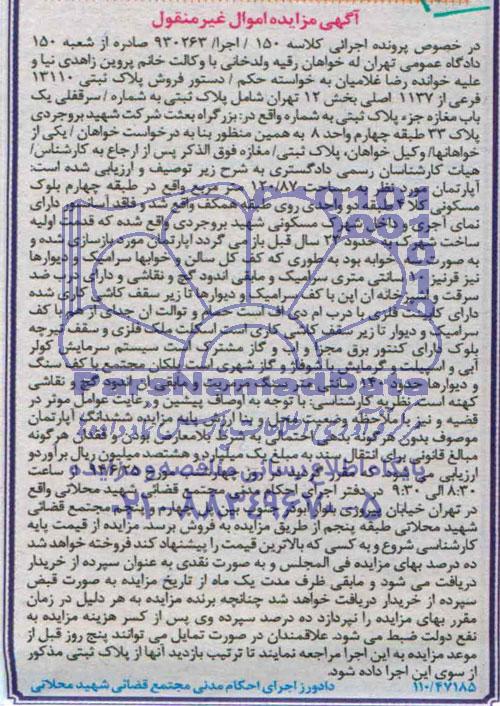 آگهی مزایده اموال غیر منقول
در خصوص پرونده اجرائی کلاسه ۱۵۰ / اجرا/ ۹۳۰۲۶۳ صادره از شعبه ۱۵۰
دادگاه عمومی تهران له خواهان رقیه ولدخانی با وکالت خانم پروین زاهدی نیا و
علیه خوانده رضا غلامیان به خواسته حکم / دستور فروش پلاک ثبتی ۱۳۱۱۰
فرعی از ۱۱۳۷ اصلی بخش ۱۲ تهران شامل پلاک ثبتی به شماره / سرقفلی یک
باب مغازه جزء پلاک ثبتی به شماره واقع در: بزرگراه بعثت شرکت شهید بروجردی
پلاک ۳۳ طبقه چهارم واحد ۸ به همین منظور بنا به درخواست خواهان / یکی از
خواهانها/ وکیل خواهان، پلاک ثبتی/ مغازه فوق الذکر پس از ارجاع به کارشناس/
هیات کارشناسان رسمی دادگستری به شرح زیر توصیف و ارزیابی شده است:
آپارتمان مورد نظر به مساحت ۱۲۰/۸۷ متر مربع واقع در طبقه چهارم بلوک
مسکونی کلا ۴ طبقه دو واحدی روی طبقه همکف واقع شد و فاقد آسانسور دارای
نمای آجری و داخل شهرک مسکونی شهید بروجردی واقع شده که قدمت اولیه
ساخت شهرک به حدود ۲۳ سال قبل باز می گردد آپارتمان مورد بازسازی شده و
به صورت خوابه بود به طوری که کف کل سالن و خوابها سرامیک و دیوارها
نیز قرنیز ۱۰ سانتی متری سرامیک و مابقی اندود گچ و نقاشی و دارای درب ضد
سرقت و آشپزخانه آن اپن با کف سرامیک و دیوارها تا زیر سقف کاشی کاری شده
دارای کابینت فلزی با درب ام دی اف است حمام و توالت آن جدای از هم با کف
سرامیک و دیوار تا زیر سقف کاشی کاری است اسکلت ملک فلزی و سقف تیرچه
بلوک دارای کنتور برق مجزا و آب و گاز مشترک است سیستم سرمایش کولر
آبی و اسپیلت و گرمایش با شوفاژ و گاز شهری است پلکان مجتمع با کف سنگ
و دیوارها حدود ۱۳۰ سانتی متر سنگ مرمریت و مابقی آن اندود گچ و نقاشی
کهنه است. نظریه کارشناسی: با توجه به اوصاف پیشین و رعایت عوامل موثر در
قضیه و نیز با ملاحظه وضعیت محل و بنا ارزش پایه مزایده ششدانگ آپارتمان
موصوف بدون هرگونه بدهی احتمالی به شرط بلامعارض بودن و فقدان هرگونه
مبالغ قانونی برای انتقال سند به مبلغ یک میلیارد و هشتصد میلیون ریال برآورد و
ارزیابی می شود. مقرر گردید در روز چهارشنبه مورخ ۹۴/۶/۲۵ از ساعت
۸:۳۰ الی ۹:۳۰ در دفتر اجرای احکام مدنی مجتمع قضائی شهید محلاتی واقع
در تهران خیابان پیروزی بلوار ابوذر جنوبی بین پل چهارم و پنجم مجتمع قضائی
شهید محلاتی طبقه پنجم از طریق مزایده به فروش برسد. مزایده از قیمت پایه
کارشناسی شروع و به کسی که بالاترین قیمت را پیشنهاد کند فروخته خواهد شد
ده درصد بهای مزایده فی المجلس و به صورت نقدی به عنوان سپرده از خریدار
دریافت می شود و مابقی ظرف مدت یک ماه از تاریخ مزایده به صورت قبض
سپرده از خریدار دریافت خواهد شد چنانچه برنده مزایده به هر دلیل در زمان
مقرر بهای مزایده را نپردازد ده درصد سپرده وی پس از کسر هزینه مزایده به
نفع دولت ضبط می شود. علاقمندان در صورت تمایل می توانند پنج روز قبل از
موعد مزایده به این اجرا مراجعه نمایند تا ترتیب بازدید آنها از پلاک ثبتی مذکور
از سوی این اجرا داده شود.
۱۱۰/۴۷۱۸۵ دادورز اجرای احکام مدنی مجتمع قضائی شهید محلاتی
پایگاه اطلاع رسانی مناقصه و مزایده
۰۲۱-۸۸۳۴۹۶۷۰-۵